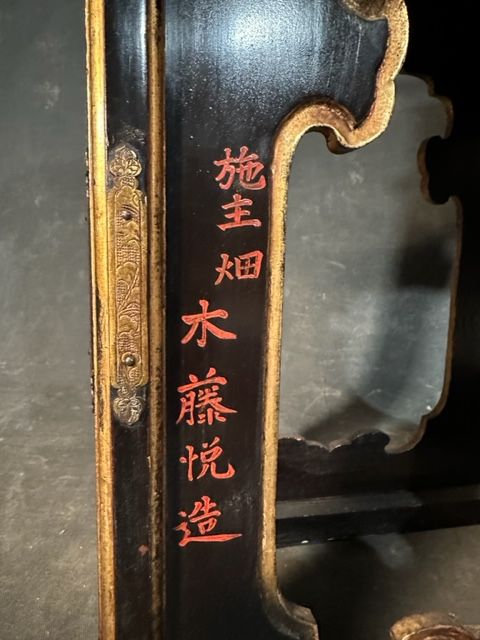 施主畑
木藤悦造